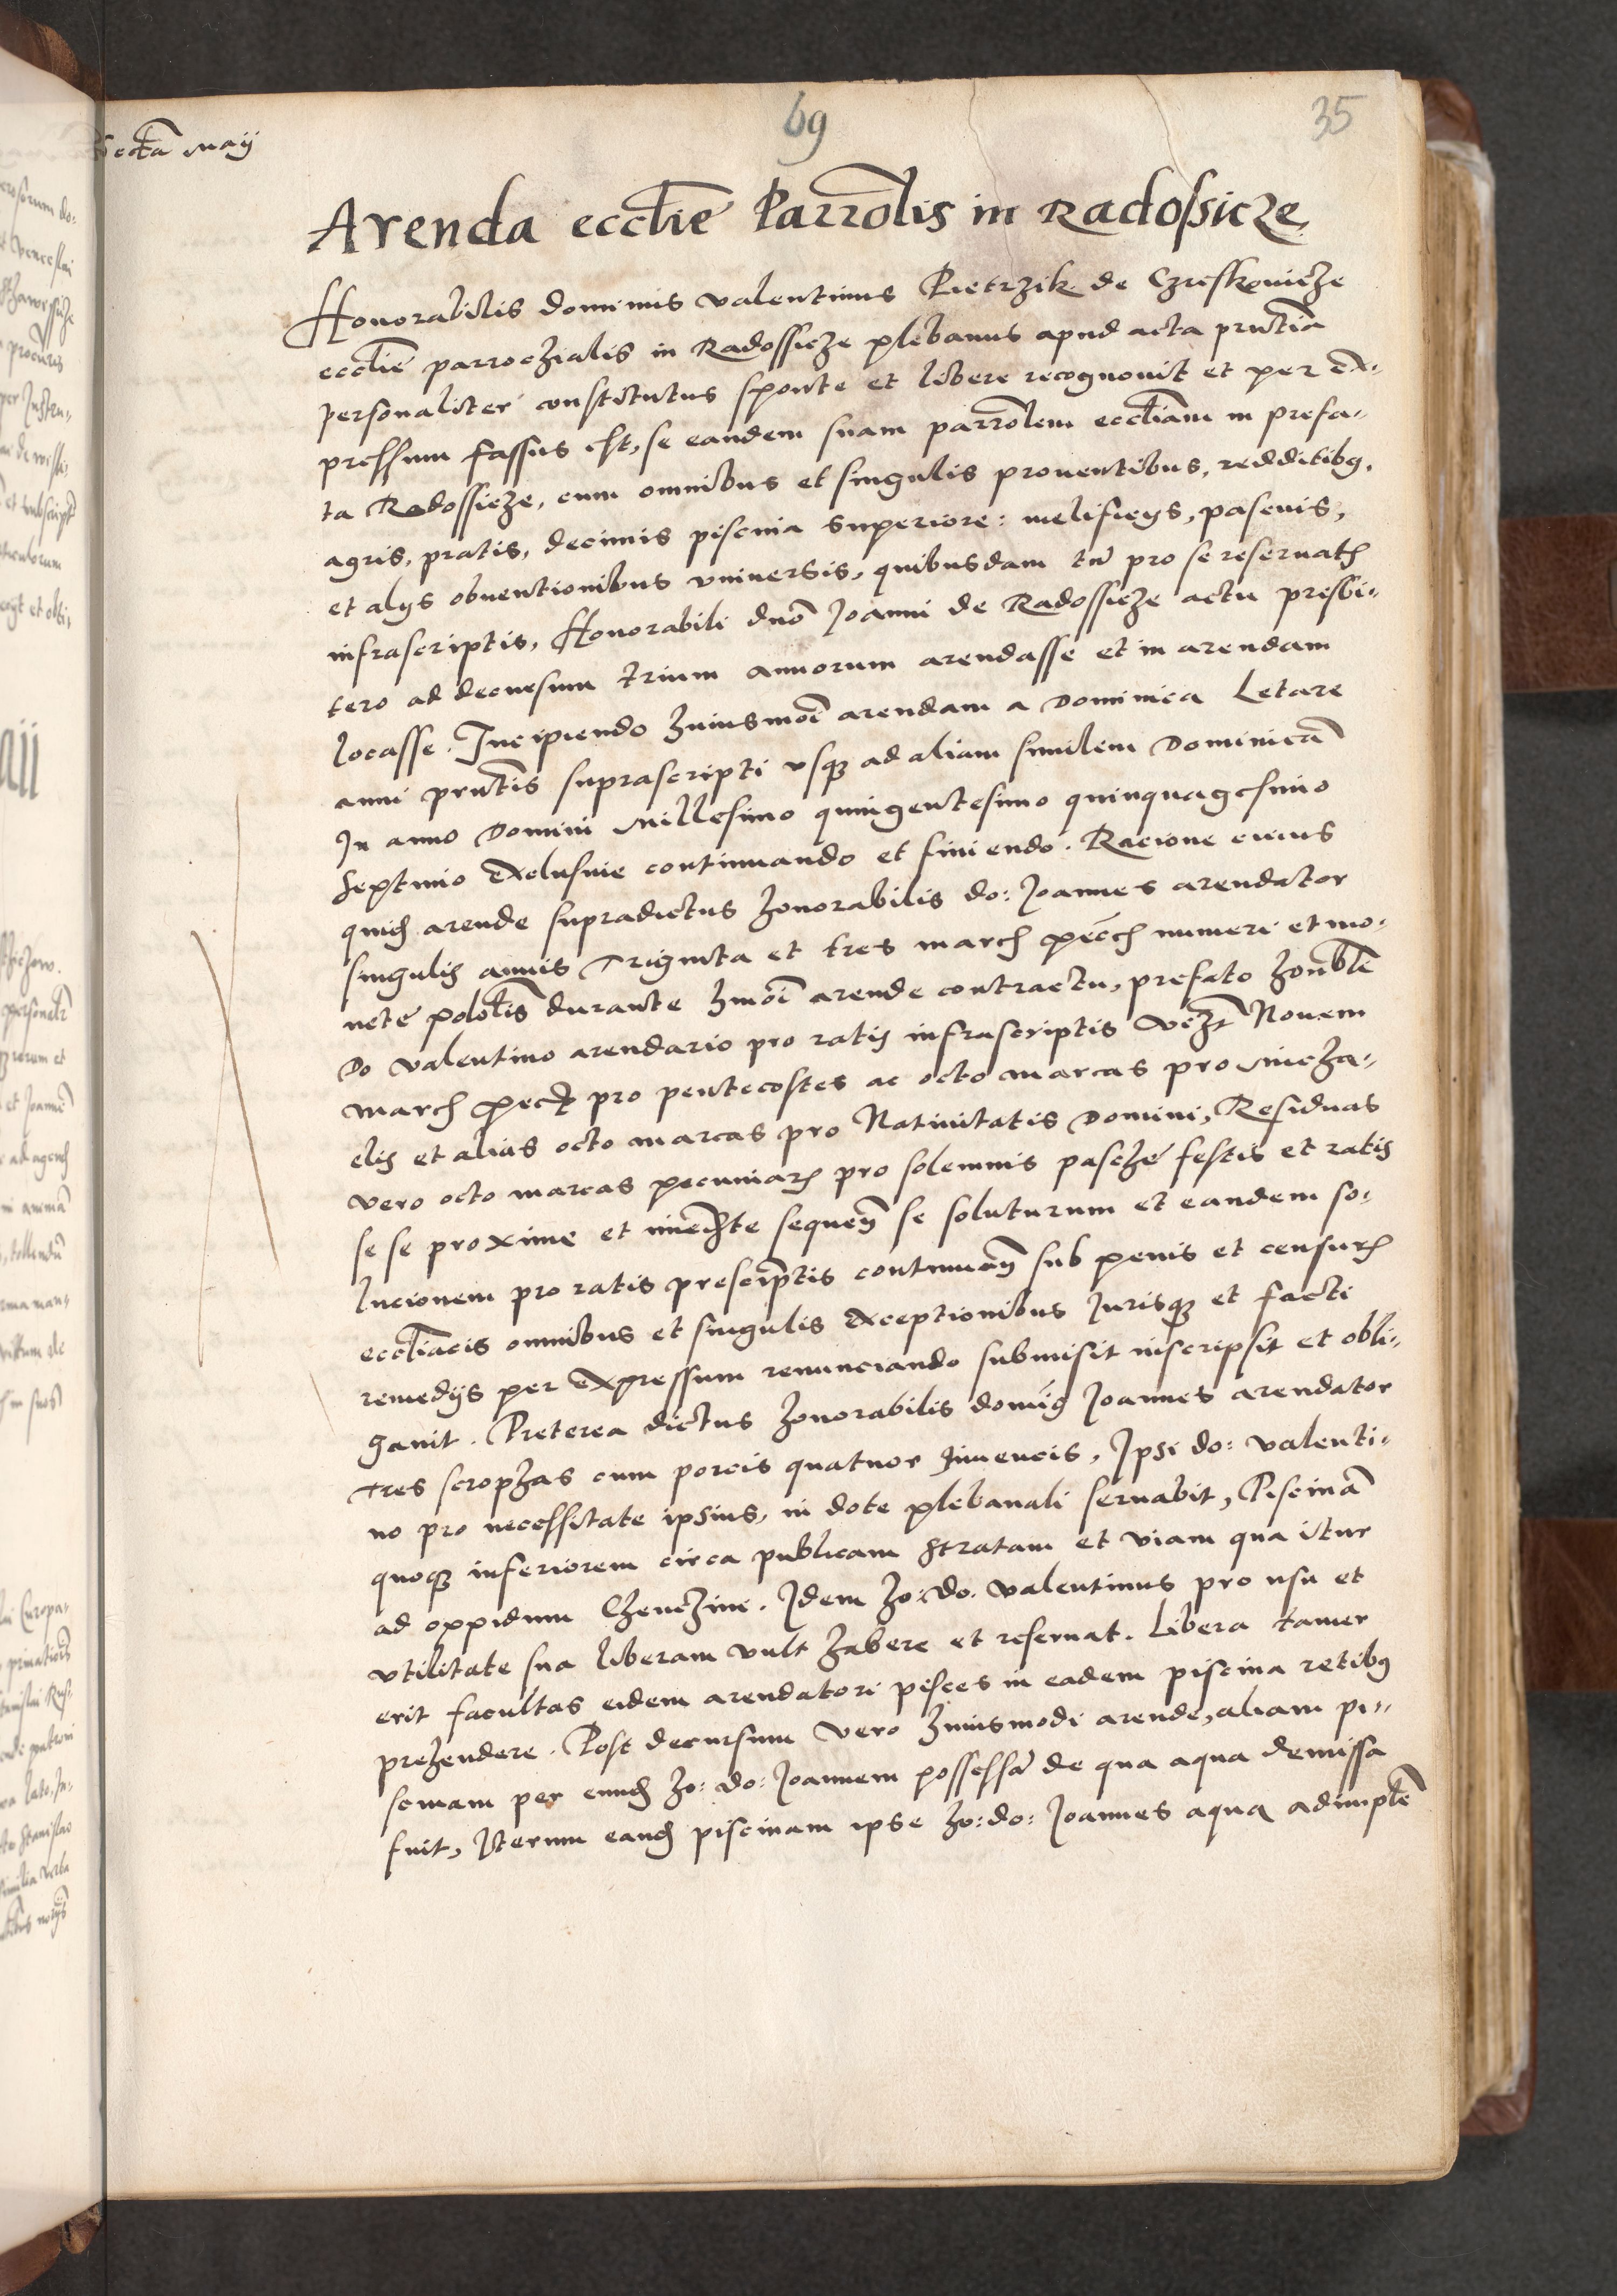 69
35
Secta Maij
Arenda ecclie Parrolis in Radossicze
Honorabilis dominus Valentinus Pietrzik de Czesskouicze
ecclie parrochialis in Radossicze plebanus apud acta prntia
personaliter constitutus sponte et libere recognouit et per ex-
pressum fassus est, se eandem suam parrolem eccliam in prefa-
ta Radossicze, cum omnibus et singulis prouentibus, redditibq,
agris, pratis, decimis piscina superiore: melificijs, pascuis,
et alijs obuentionibus vniuersis, quibusdam tn pro se reseruatis
infrascriptis, Honorabili dno Joanni de Radossicze actu presbi-
tero ad decursum trium annorum arendasse et in arendam
locasse. Incipiendo huiusmoi arendam a Dominica Letare
anni prntis suprascripti vsq ad aliam similem Dominica
In anno Domini Millesimo quingentesimo quinquagesimo
septimo exclusiue continuando et finiendo. Racione cuius
quid arende supradictus honorabilis do: Joannes arendator
singulis annis Triginta et tres march pecch numeri et mo-
nete pololis durante hmoi arende contractu, prefato honbli
Do Valentino arendario pro ratis infrascriptis vczt Nouem
march pecch pro pentecostes ac octo marcas pro Micha-
elis et alias octo marcas pro Natiuitatis Domini, Residuas
vero octo marcas pecuniar pro solemnis pasche festis et ratis
se se proxime et immedte sequen se soluturum et eandem so-
lucionem pro ratis prescriptis continuan sub penis et censuris
eccliacis omnibus et singulis exceptionibus Jurisq et facti
remedijs per expressum renunciando submisit inscripsit et obli-
gauit. Preterea dictus honorabilis dominq Joannes arendator
tres scrophas cum porcis quatuor Juuencis, Ipsi do: Valenti-
no pro necessitate ipsius, in dote plebanali seruabit, Piscina
quoq inferiorem circa publicam stratam et viam qua itur
ad oppidum Chenczini. Idem ho: do. Valentinus pro usu et
vtilitate sua liberam vult habere et reseruat. Libera tamen
erit facultas eidem arendatori pisces in eadem piscina retibq
prehendere. Post decursum vero huiusmodi arende, aliam pi-
scinam per eund ho: do: Joannem possessa de qua aqua demissa
fuit, Iterum eand piscinam ipse ho: do: Joannes aqua adimple